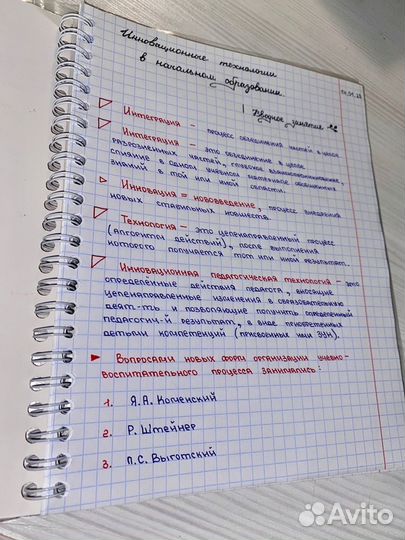 Инновационные технологии
в начальном образовании.
Вводное занятие
Интеграция – процесс объединения частей в целое.
Интеграция – это объединение в целое
разрозненных частей, глубокое взаимопроникновение,
слияние в одном учебном материале обобщённых
знаний в той или иной области.
Инновация = нововведение, процесс внедрения
новых стабильных новшеств.
Технология – это целенаправленный процесс
(алгоритм действий), после выполнения
которого получается тот или иной результат.
Инновационная педагогическая технология – это
определённые действия педагога, вносящие
целенаправленные изменения в образовательную
деят-ть и позволяющие получить определённый
педагогич-й результат, в виде приобретённых
детьми компетенций (присвоенных ими ЗУН).
Вопросами новых форм организации учебно-
воспитательного процесса занимались:
1. Я.А. Коменский
2. Р. Штейнер
3. Л.С. Выготский
Avito